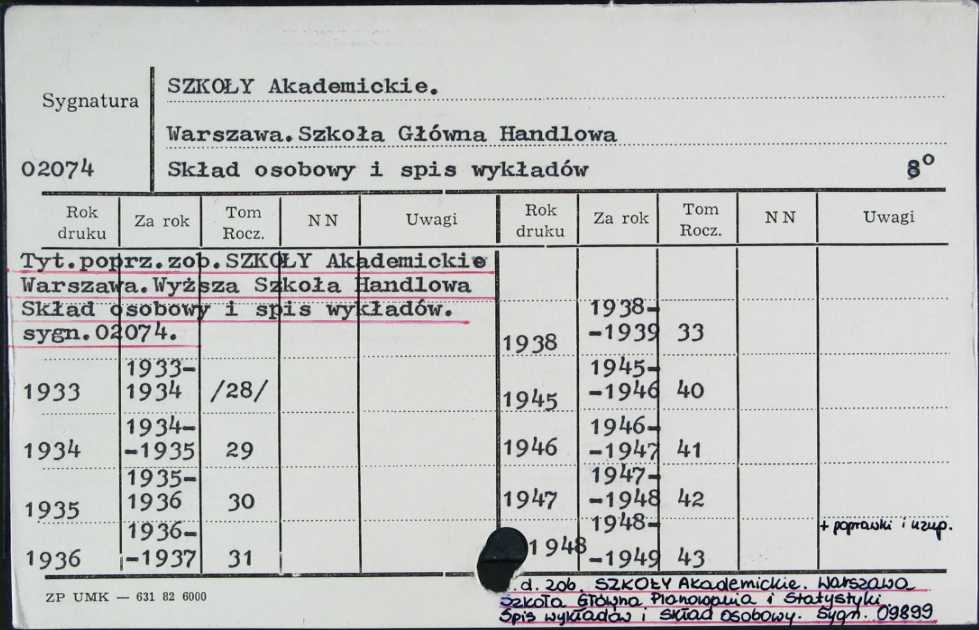 SZKOŁY Akademickie.
Sygnatura
Warszawa.Szkoła Główna Handlowa
02074
Skład osobowy i spis wykładów
8°
Rok druku Za rok Tom Rocz. NN Uwagi Rok druku Za rok Tom Rocz. NN Uwagi
Tyt.poprz.zob.SZKOŁY Akademickie
Warszawa.Wyższa Szkoła Handlowa
Skład osobowy i spis wykładów.
sygn.02074.
1933 1933-1934 /28/
1934 1934--1935 29
1935 1935-1936 30
1936 1936--1937 31
1938 1938--1939 33
1945 1945--1946 40
1946 1946--1947 41
1947 1947--1948 42
1948 1948--1949 43 + poprawki i uzup.
ZP UMK — 631 82 6000
.d. zob. SZKOŁY Akademickie. Warszawa
Szkoła Główna Planowania i Statystyki
Spis wykładów i skład osobowy. Sygn. 09899